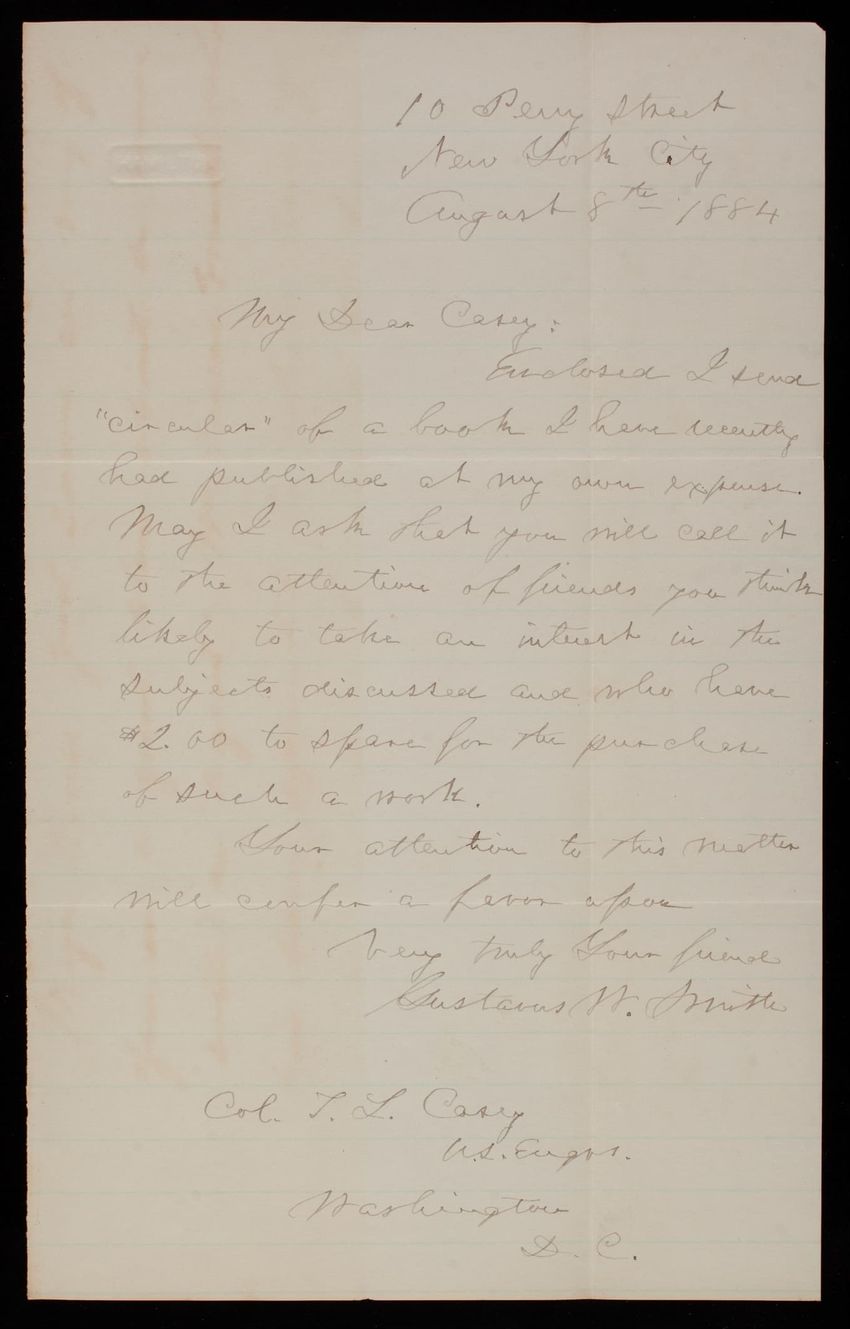 10 Perry Street
New York City
August 8th 1884
My Dear Casey:
Enclosed I send
"circular" of a book I have recently
had published at my own expense.
May I ask that you will call it
to the attention of friends you think
likely to take an interest in the
subjects discussed and who have
$2.00 to spare for the purchase
of such a work.
Your attention to this matter
will confer a favor upon
Very truly Your friend
Gustavus W. Smith
Col. T. L. Casey
U.S. Engrs.
Washington
D. C.